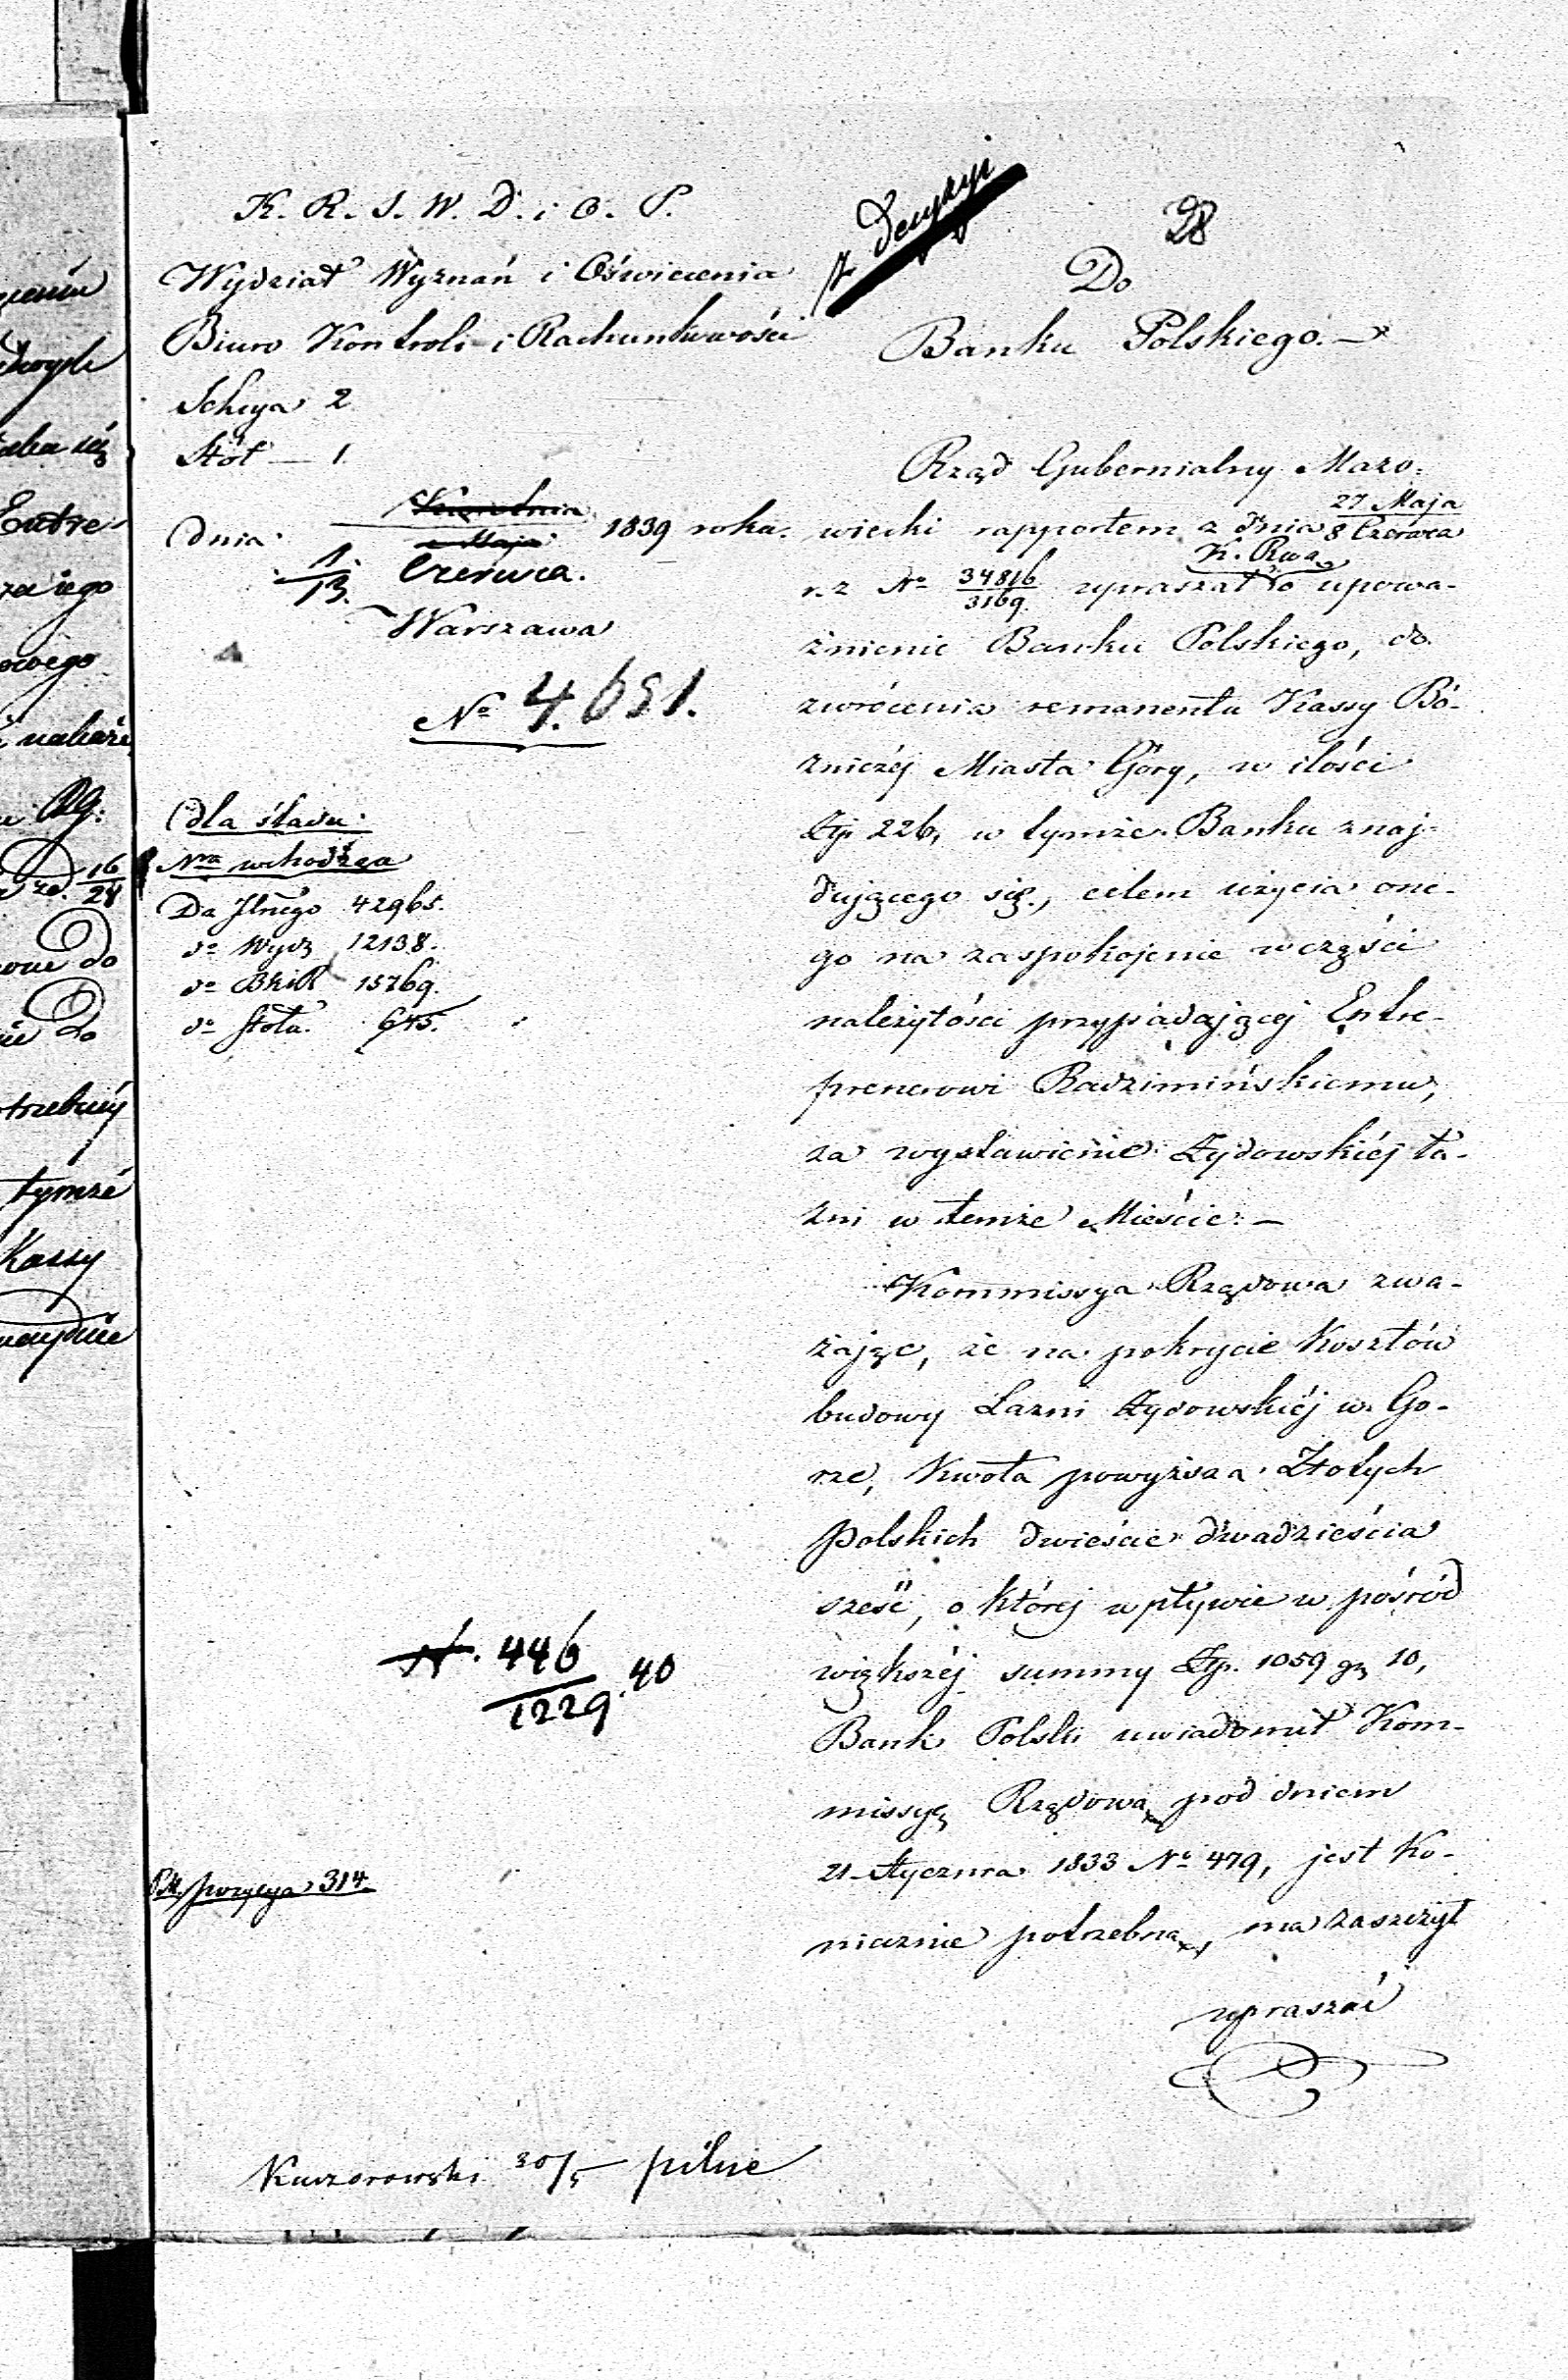 K. R. S. W. D. i O. P.
Wydział Wyznań i Oświecenia
Biuro Kontroli i Rachunkowości
Sekcya 2
Stół — 1.
dnia Kwietnia Maja 1839 roku.
1./13. Czerwca.
Warszawa
No 4.651.
dla śladu.
Nra wchodząca
Da Jlnego 42965.
do Wydz 12138.
do BKiR 15769.
do Stołu. 645.
N. 446/1229.40
pozycya 314
Kuczorowski 30/5 pilne
z Decyzyi
28
Do
Banku Polskiego.—
Rząd Gubernialny Mazo-
wiecki rapportem z dnia 27 Maja/8 Czerwca
r. z No 34816/3169. upraszał K. Rwą o upowa-
żnienie Banku Polskiego, do
zwrócenia remanentu Kassy Bó-
żniczéj Miasta Góry, w ilości
Złp. 226, w tymże Banku znaj-
dującego się, celem użycia one-
go na zaspokojenie w części
należytości przypadającej Entre-
prenerowi Radzimińskiemu,
za wystawienie Żydowskiéj Ła-
źni w temże Mieście.—
Kommissya Rządowa zwa-
żając, że na pokrycie Kosztów
budowy Łazni Żydowskiéj w Go-
rze, Kwota powyższa Złotych
Polskich dwieście dwadzieścia
sześć, o któréj wpływie w pośród
większéj summy Złp. 1059 gr 10,
Bank Polski uwiadomił Kom-
missyę Rządową pod dniem
21 Stycznia 1833 No 479, jest Ko-
niecznie potrzebną, ma zaszczyt
upraszać